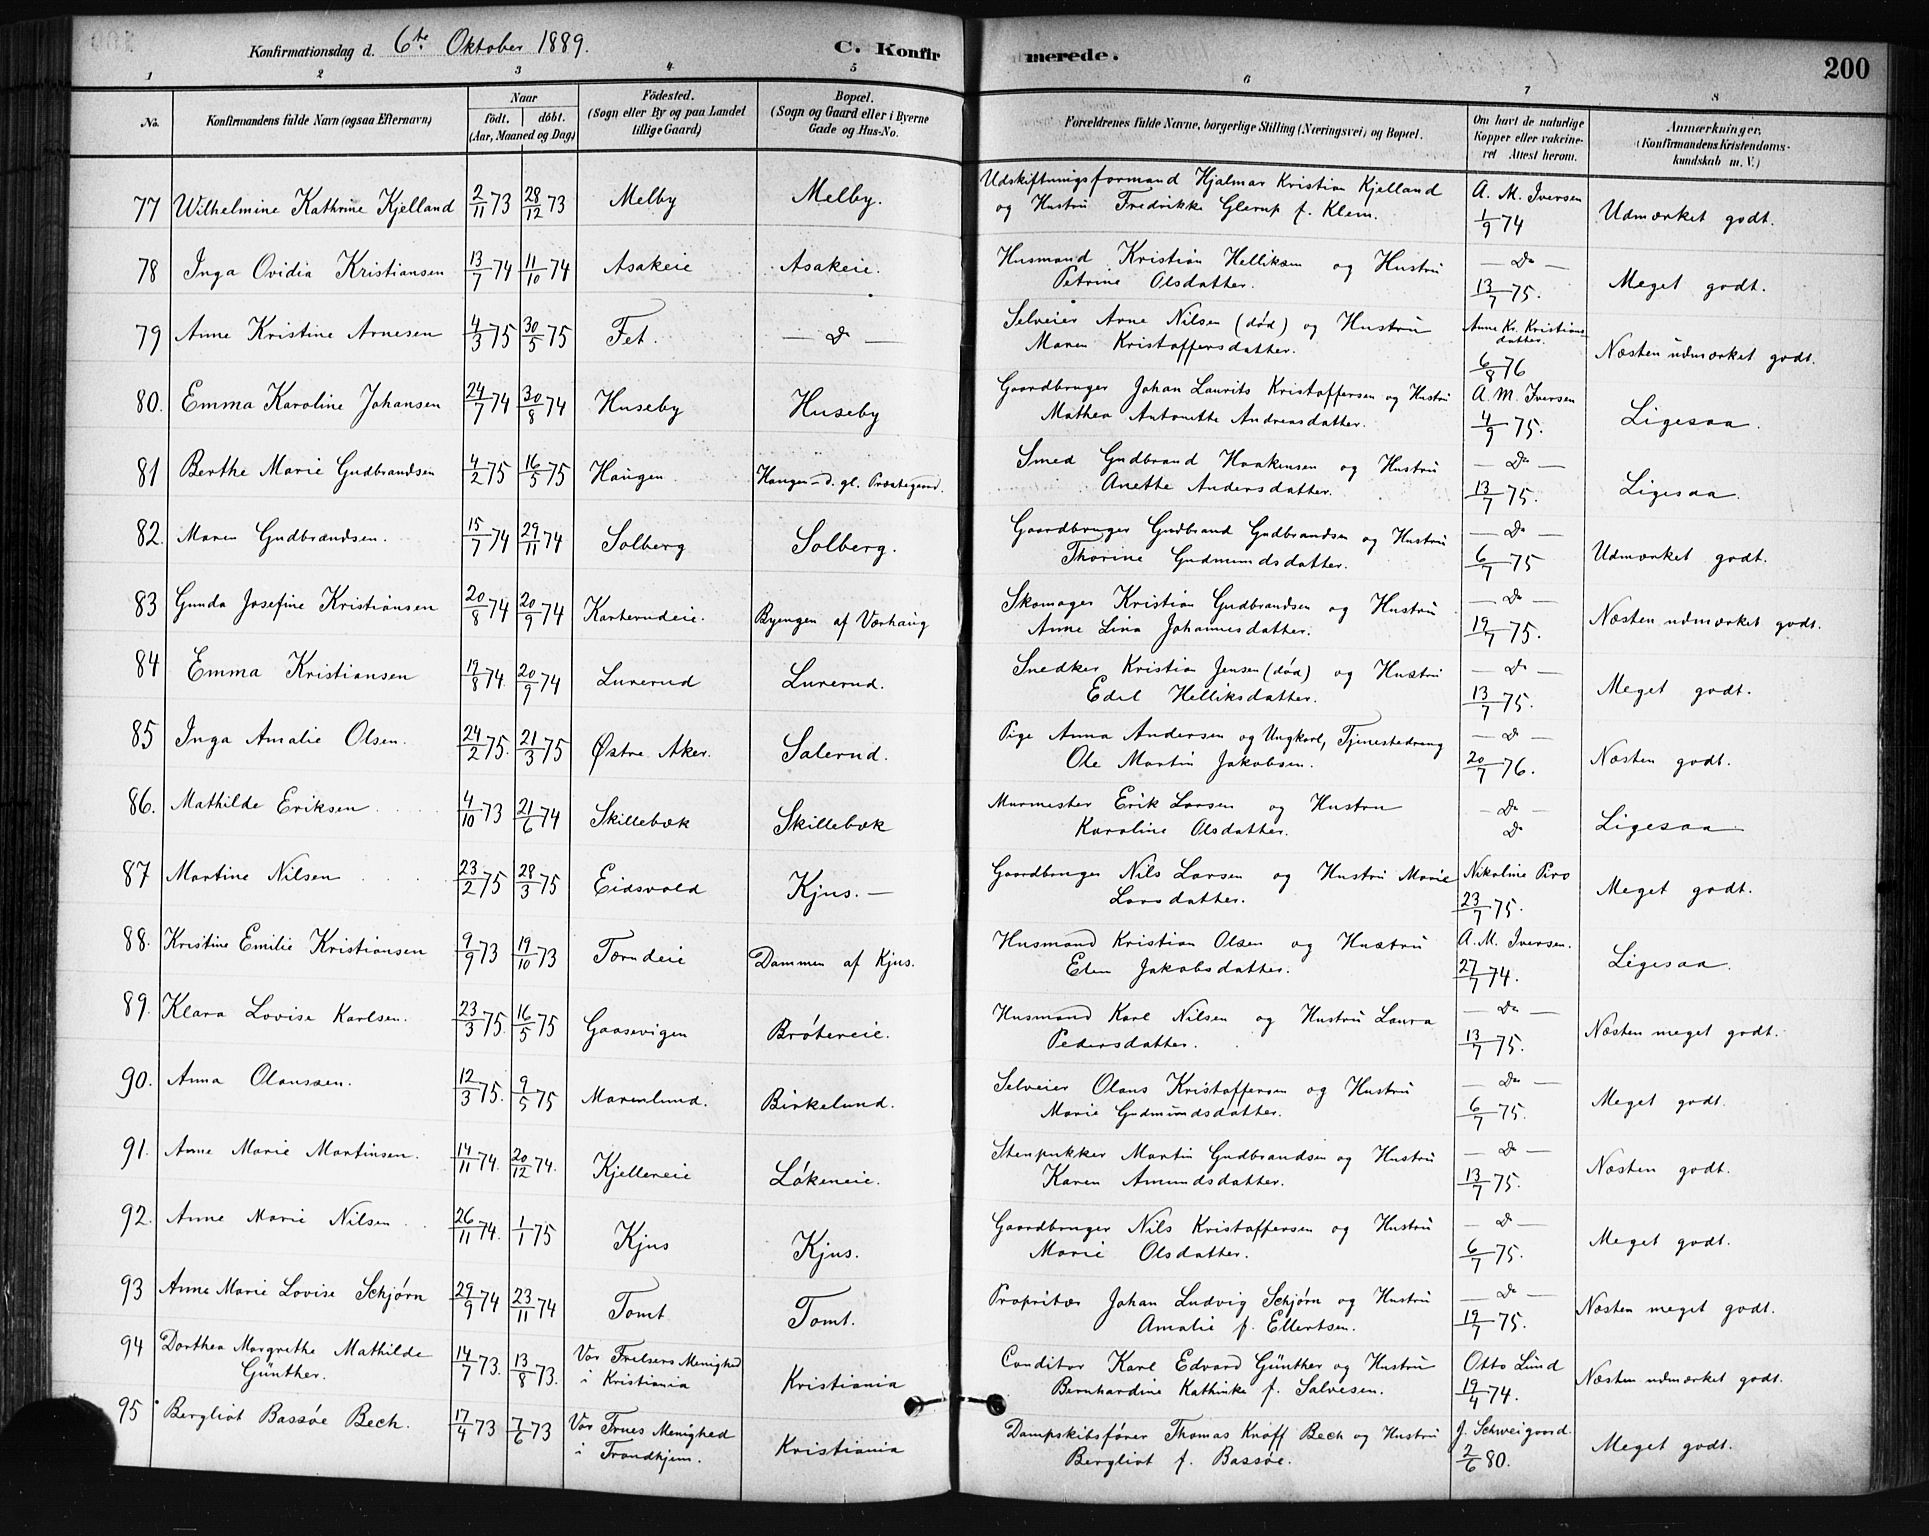 Konfirmationsdag d. 6te Oktober 1889. C. Konfirmerede. 200
1 2 3 4 5 6 7 8
No. Konfirmandens fulde Navn (ogsaa Efternavn) Naar født. døbt. (Aar, Maaned og Dag) Fødested. (Sogn eller By og paa Landet tillige Gaard) Bopæl. (Sogn og Gaard eller i Byerne Gade og Hus-No. Forældrenes fulde Navne, borgerlige Stilling (Næringsvei) og Bopæl. Om havt de naturlige Kopper eller vakcineret Attest herom. Anmærkninger. (Konfirmandens Kristendomskundskab m. V.)
77 Wilhelmine Kathrine Kjelland 2/11 73 28/12 73 Melby Melby. Udskiftningsformand Hjalmar Kristian Kjelland A. M. Iversen
og Hustru Fredrikke Glerup f. Klem. 1/9 74 Udmærket godt.
78 Inga Ovidia Kristiansen 13/7 74 11/10 74 Asakeie Asakeie. Husmand Kristian Helliksen og Hustru — Do —
Petrine Olsdatter. 13/7 75. Meget godt.
79 Anne Kristine Arnesen 4/3 75 30/5 75 Fet. — Do — Selveier Arne Nilsen (død) og Hustru Anne Kr. Kristiansdatter.
Maren Kristoffersdatter. 6/8 76 Næsten udmærket godt.
80. Emma Karoline Johansen 24/7 74 30/8 74 Huseby Huseby Gaardbruger Johan Laurits Kristoffersen og Hustru A. M. Iversen
Mathea Antonette Andreasdatter. 4/9 75. Ligesaa.
81 Berthe Marie Gudbrandsen 4/2 75 16/5 75 Haugen Haugen d. gl. Præstegaard. Smed Gudbrand Haakensen og Hustru — Do —
Anette Andersdatter. 13/7 75. Ligesaa.
82. Maren Gudbrandsen. 15/7 74 29/11 74 Solberg Solberg. Gaardbruger Gudbrand Gudbrandsen og Hustru — Do —
Thorine Gudmundsdatter. 6/7 75 Udmærket godt.
83 Gunda Josefine Kristiansen 20/8 74 20/9 74 Karterudeie. Byengen af Værhaug Skomager Kristian Gudbrandsen og Hustru — Do —
Anne Lina Johannesdatter. 19/7 75. Næsten udmærket godt.
84 Emma Kristiansen 19/8 74. 20/9 74 Lurerud Lurerud. Snedker Kristian Jensen (død) og Hustru — Do —
Edel Helliksdatter. 13/7 75. Meget godt.
85 Inga Amalie Olsen. 24/2 75. 21/3 75 Østre Aker. Salerud. Pige Anna Andersen og Ungkarl, Tjenestedreng — Do —
Ole Martin Jakobsen. 20/7 76. Næsten godt.
86. Mathilde Eriksen 4/10 73 21/6 74 Skillebæk Skillebæk Murmester Erik Larsen og Hustru — Do —
Karoline Olsdatter. Do Ligesaa
87 Martine Nilsen 23/2 75 28/3 75 Eidsvold Kjus. — Gaardbruger Nils Larsen og Hustru Marie Nikoline Piro
Larsdatter. 23/7 75. Meget godt.
88. Kristine Emilie Kristiansen 9/9 73 19/10 73 Torndeie Dammen af Kjus. Husmand Kristian Olsen og Hustru A. M. Iversen.
Elen Jakobsdatter. 27/7 74. Ligesaa.
89. Klara Lovise Karlsen. 23/3 75. 16/5 75 Gaasevigen Brøtereie. Husmand Karl Nilsen og Hustru Laura — Do —
Pedersdatter. 13/7 75. Næsten meget godt.
90. Anna Olaussen. 12/3 75. 9/5 75 Marenlund. Birkelund. Selveier Olaus Kristoffersen og Hustru — Do —
Marie Gudmundsdatter. 6/7 75. Meget godt.
91. Anne Marie Martinsen. 14/11 74. 20/12 74. Kjellereie Løkeneie. Stenpukker Martin Gudbrandsen og Hustru — Do —
Karen Amundsdatter. 13/7 75. Næsten godt.
92. Anne Marie Nilsen 26/11 74. 1/1 75 Kjus Kjus. Gaardbruger Nils Kristoffersen og Hustru — Do —
Marie Olsdatter. 6/7 75. Meget godt.
93 Anne Marie Lovise Schjørn 29/9 74 23/11 74 Tomt Tomt. Propritær Johan Ludvig Schjørn og Hustru — Do —
Amalie f. Ellertsen. 19/7 75. Næsten meget godt.
94 Dorthea Margrethe Mathilde 14/7 73. 13/8 73. Vor Frelsers Menighed Conditor Karl Edvard Günther og Hustru Otto Lund
Günther. i Kristiania Kristiania Bernhardine Kathinka f. Salvesen. 19/4 74. Næsten udmærket godt.
95 Bergliot Bassøe Bech. 17/4 73 7/6 73 Vor Frues Menighed Dampskibsfører Thomas Kroff Bech og Hustru J. Schweigaard.
i Trondhjem. Kristiania Bergliot f. Bassøe. 2/6 80. Meget godt.